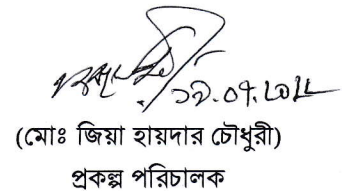 ১৯.০৭.২০২২
(মোঃ জিয়া হায়দার চৌধুরী)
প্রকল্প পরিচালক